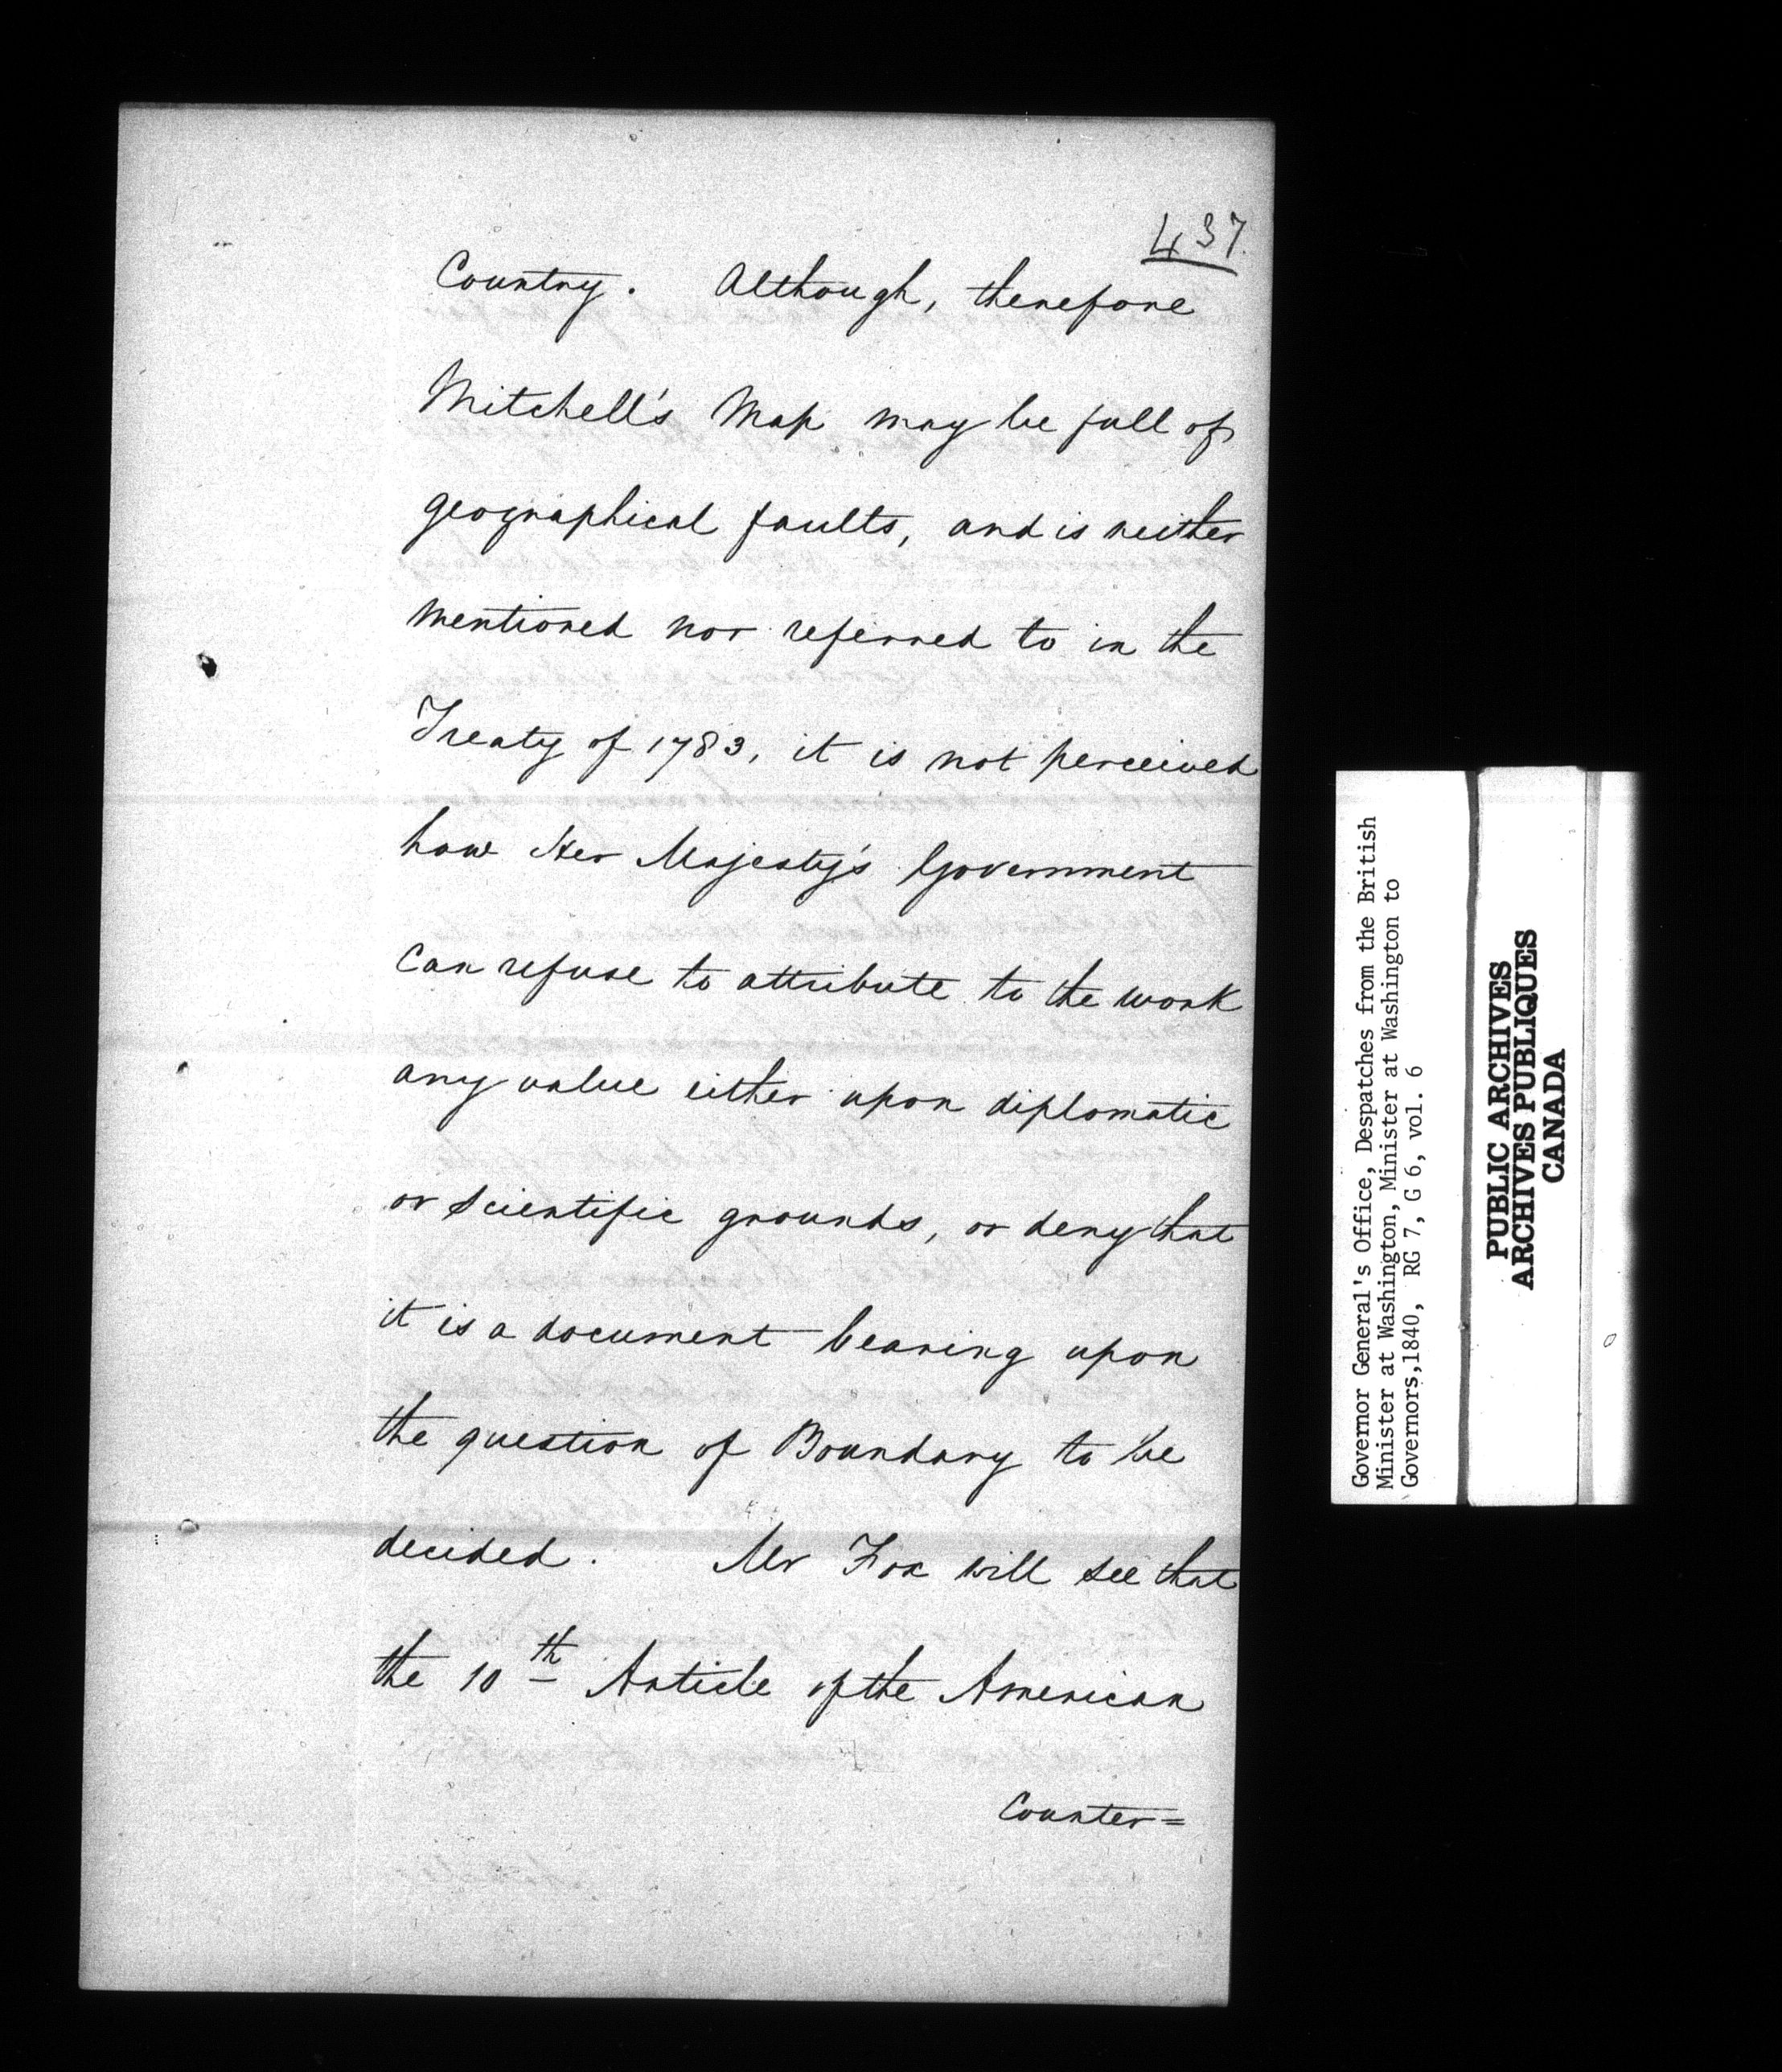 437.
Country. Although, therefore
Mitchell's Map may be full of
geographical faults, and is neither
mentioned nor referred to in the
Treaty of 1783, it is not perceived
how Her Majesty's Government
Can refuse to attribute to the work
any value either upon diplomatic
or scientific grounds, or deny that
it is a document bearing upon
the question of Boundary to be
decided. Mr Fox will see that
the 10th Article of the American
Counter=
Governor General's Office, Despatches from the British
Minister at Washington, Minister at Washington to
Governors,1840, RG 7, G 6, vol. 6
PUBLIC ARCHIVES
ARCHIVES PUBLIQUES
CANADA